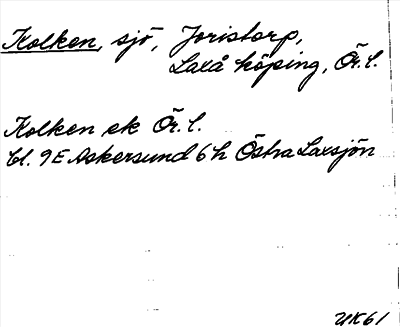 Kolken, sjö, Joristorp,
Laxå köping, Ör. l.
Kolken ek Ör. l.
bl. 9E Askersund 6h Östra Laxsjön
UK61